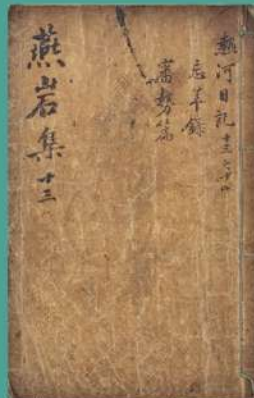 熱河日記 十三
忘羊錄
審勢篇
燕岩集 十三